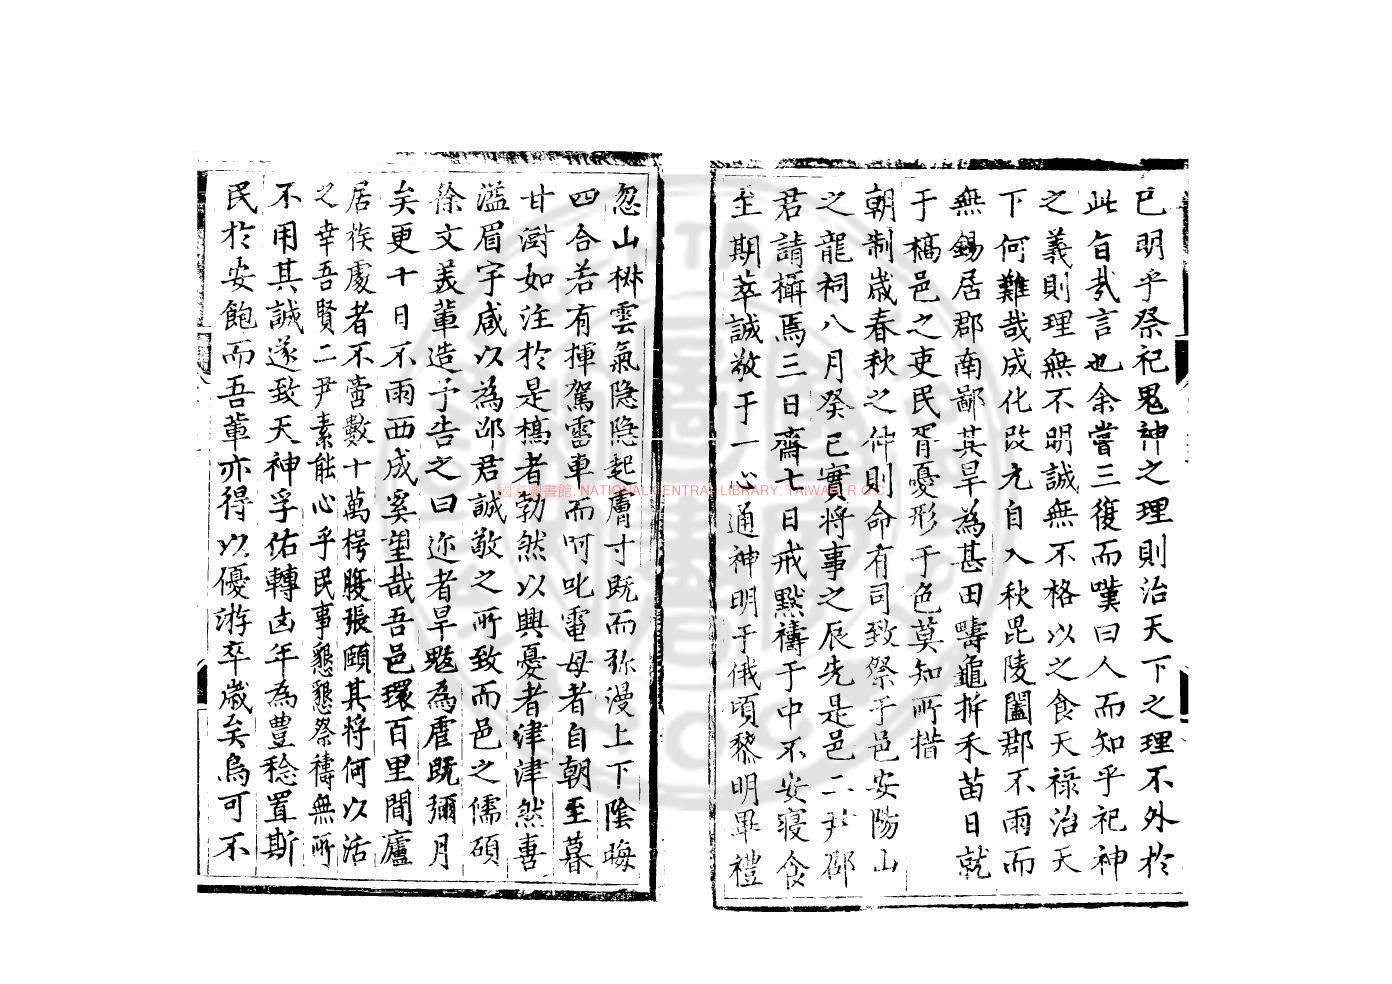 已明乎祭祀鬼神之理則治天下之理不外於
此旨哉言也余嘗三復而嘆曰人而知乎祀神
之義則理無不明誠無不格以之食天祿治天
下何難哉成化改元自入秋毘陵闔郡不雨而
無錫居郡南鄙其旱為甚田疇龜拆禾苗日就
于槁邑之吏民胥憂形于色莫知所措
朝制歲春秋之仲則命有司致祭于邑安陽山
之龍祠八月癸已實將事之辰先是邑二尹邵
君請攝焉三日齋七日戒黙禱于中不安寝食
至期萃誠敬于一心通神明于俄頃黎明畢禮
忽山椒雲氣隐隐起膚寸既而弥漫上下陰晦
四合若有揮駕雷車而呵叱電母者自朝至暮
甘澍如注於是槁者勃然以興憂者津津然喜
溢眉宇咸以為邵君誠敬之所致而邑之儒碩
徐文美軰造予告之曰迩者旱魃為虐既彌月
矣更十日不雨西成奚望哉吾邑環百里間廬
居族處者不啻數十萬枵腹張頤其將何以活
之幸吾賢二尹素能心乎民事懇懇祭禱無所
不用其誠遂致天神孚佑轉凶年為豊稔置斯
民於安飽而吾軰亦得以優游卒歲矣烏可不
國家圖書館, NATIONAL CENTRAL LIBRARY, TAIWAN, R.O.C.